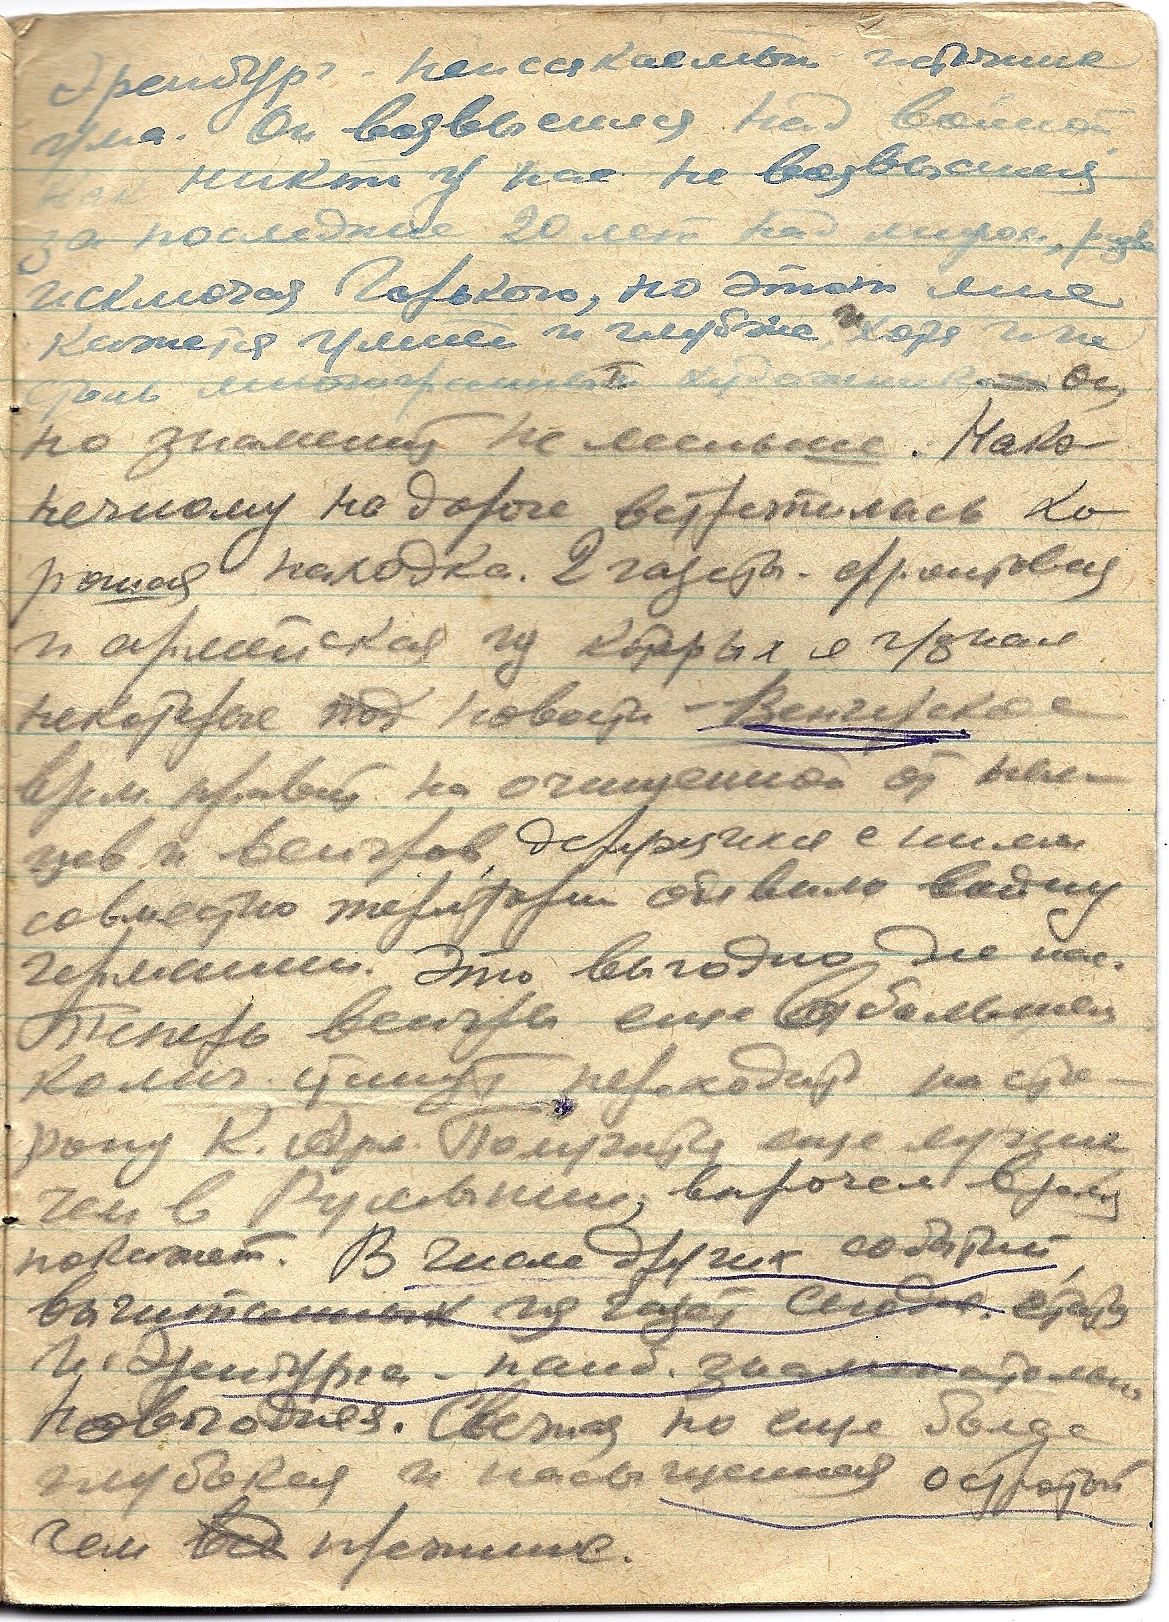 Эренбург - неиссякаемый источник
ума. Он возвысился над войной,
как никто у нас не возвысился
за последние 20 лет над миром, разве
исключая Горького, но этот мне
кажется умней и глубже, хотя и не
столь многогранный художник он,
но знаменит не меньше. Нако-
нечному на дороге встретилась хо
рошая находка. 2 газеты - фронтовая
и армейская из которых я узнал
некоторые новости - Венгерское
врем. правит. на очищенной от нем-
цев и венгров, держащихся с ними
совместно территории объявило войну
германии. Это выгодно для нас.
Теперь венгры еще в большем
колич. станут переходить на сто-
рону К. Арм. Получится еще лучше
чем в Румынии, впрочем время
покажет. В числе других событий,
вычитанных из газет статья
И. Эренбурга - наиб. знаменательна,
Новогодняя. Свежая но еще более
глубокая и насыщенная остротой
чем прежние.